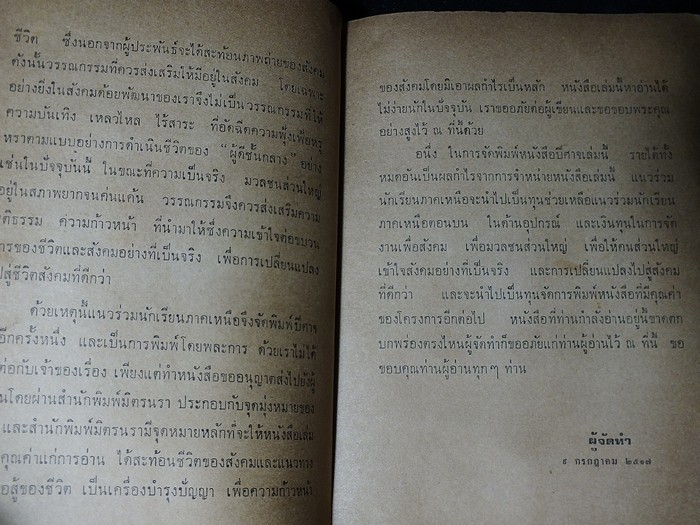 ชีวิต ซึ่งนอกจากผู้ประพันธ์จะได้สะท้อนภาพถ่ายของสังคม
ดังนั้นวรรณกรรมที่ควรส่งเสริมให้มีอยู่ในสังคม โดยเฉพาะ
อย่างยิ่งในสังคมด้อยพัฒนาของเราจึงไม่เป็นวรรณกรรมที่ให้
ความบันเทิง เหลวไหล ไร้สาระ ที่อัดฉีดความฟุ้งเฟ้อหรู
หราตามแบบอย่างการดำเนินชีวิตของ "ผู้ดีชั้นกลาง" อย่าง
เช่นในปัจจุบันนี้ ในขณะที่ความเป็นจริง มวลชนส่วนใหญ่
อยู่ในสภาพยากจนค่นแค้น วรรณกรรมจึงควรส่งเสริมความ
ติธรรม ความก้าวหน้า ที่นำมาให้ซึ่งความเข้าใจต่อขบวน
การของชีวิตและสังคมอย่างที่เป็นจริง เพื่อการเปลี่ยนแปลง
ปสู่ชีวิตสังคมที่ดีกว่า
ด้วยเหตุนี้แนวร่วมนักเรียนภาคเหนือจึงจัดพิมพ์ปีศาจ
อีกครั้งหนึ่ง และเป็นการพิมพ์โดยพละการ ด้วยเราไม่ได้
ต่อกับเจ้าของเรื่อง เพียงแต่ทำหนังสือขออนุญาตส่งไปยังผู้
นโดยผ่านสำนักพิมพ์มิตรนรา ประกอบกับจุดมุ่งหมายของ
และสำนักพิมพ์มิตรนรามีจุดหมายหลักที่จะให้หนังสือเล่ม
คุณค่าแก่การอ่าน ได้สะท้อนชีวิตของสังคมและแนวทาง
อสู้ของชีวิต เป็นเครื่องบำรุงปัญญา เพื่อความก้าวหน้า
ของสังคมโดยมิเอาผลกำไรเป็นหลัก หนังสือเล่มนี้หาอ่านได้
ไม่ง่ายนักในปัจจุบัน เราขออภัยต่อผู้เขียนและขอขอบพระคุณ
อย่างสูงไว้ ณ ที่นี้ด้วย
อนึ่ง ในการจัดพิมพ์หนังสือปีศาจเล่มนี้ รายได้ทั้ง
หมดอันเป็นผลกำไรจากการจำหน่ายหนังสือเล่มนี้ แนวร่วม
นักเรียนภาคเหนือจะนำไปเป็นทุนช่วยเหลือแนวร่วมนักเรียน
ภาคเหนือตอนบน ในด้านอุปกรณ์ และเงินทุนในการจัด
งานเพื่อสังคม เพื่อมวลชนส่วนใหญ่ เพื่อให้คนส่วนใหญ่
เข้าใจสังคมอย่างที่เป็นจริง และการเปลี่ยนแปลงไปสู่สังคม
ที่ดีกว่า และจะนำไปเป็นทุนจัดการพิมพ์หนังสือที่มีคุณค่า
ของโครงการอีกต่อไป หนังสือที่ท่านกำลังอ่านอยู่นี้ขาดตก
บกพร่องตรงไหนผู้จัดทำก็ขออภัยแก่ท่านผู้อ่านไว้ ณ ที่นี้ ขอ
ขอบคุณท่านผู้อ่านทุกๆ ท่าน
ผู้จัดทำ
๙ กรกฎาคม ๒๕๑๗